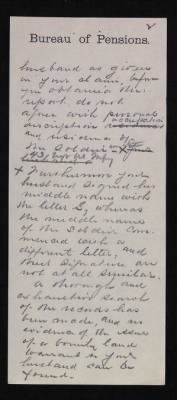 2
Bureau of Pensions.
husband as given
in your claim, when
you obtained this
report do not
agree with personal
description occupation
and residence of
the Soldier
+ Furthermore your
husband signed his
middle name with
the letter S, whereas
the middle name
of the Soldier com-
menced with a
different letter, and
their signature are
not at all similar.
A thorough and
exhaustive search
of the records has
been made, and no
evidence of the issue
of a bounty land
warrant to your
husband can be
found.